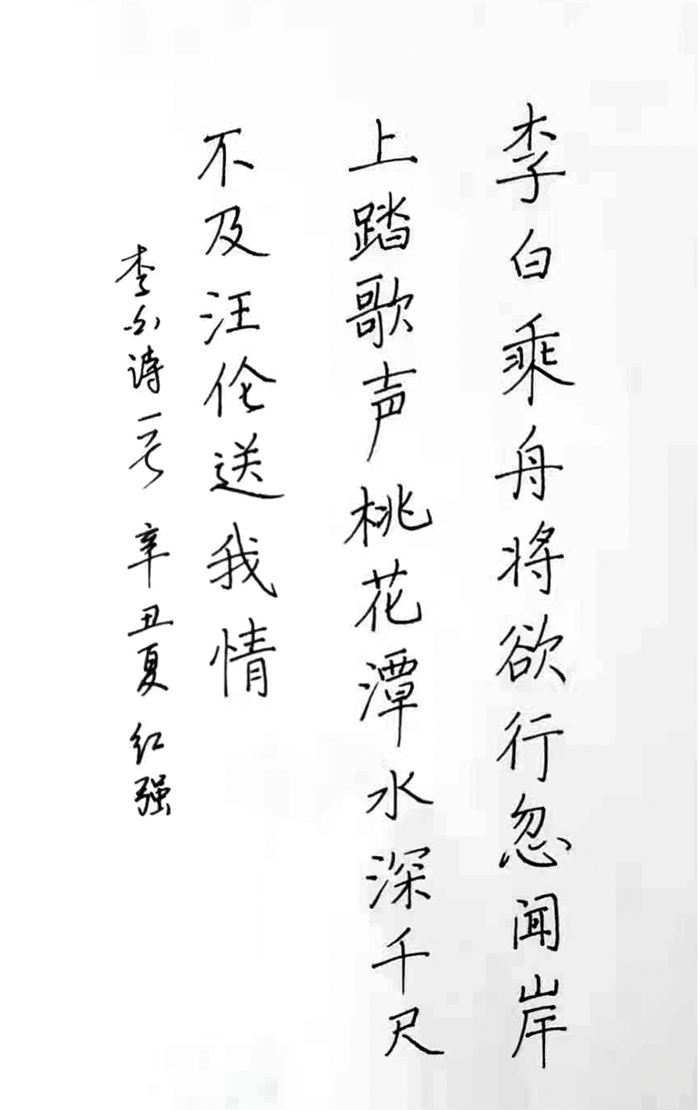 李白乘舟将欲行忽闻岸
上踏歌声桃花潭水深千尺
不及汪伦送我情
李白诗一首 辛丑夏 红强